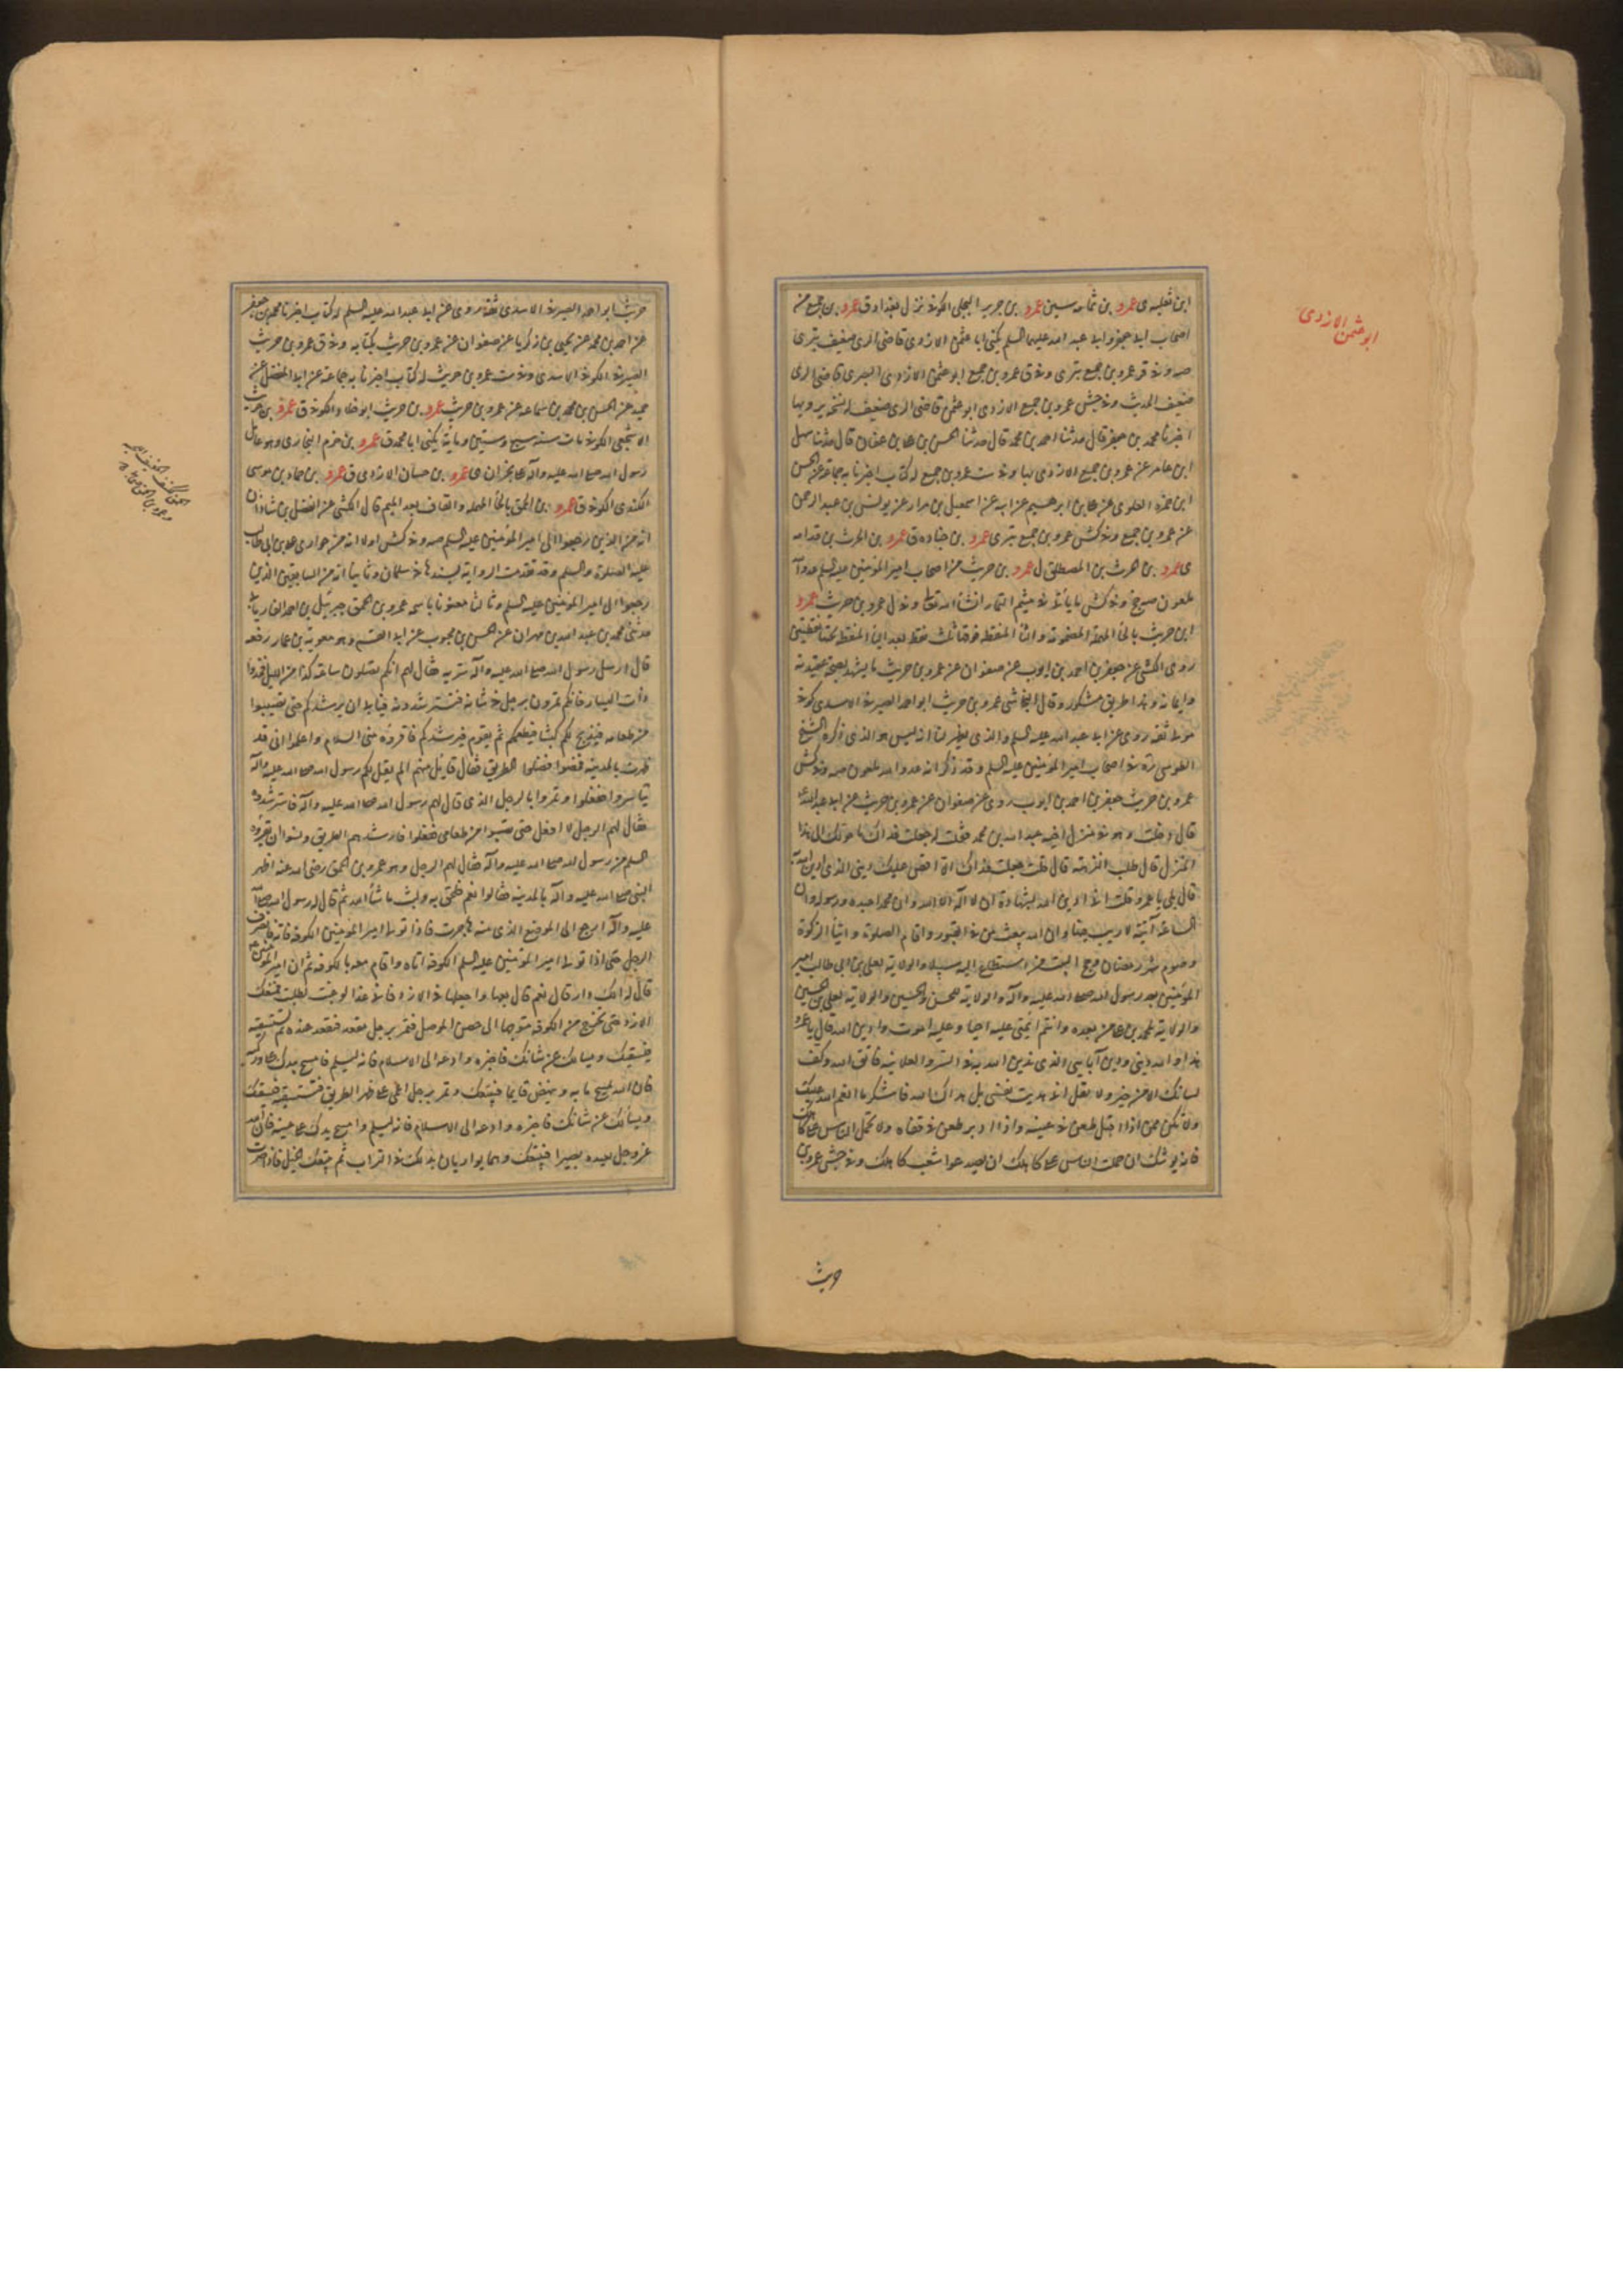 ابن ثعلبه ى عمرو بن ثمامه سين عمرو بن جرير البجلى الكوفى نزل بغداد ق عمرو بن جميع من
اصحاب ابى جعفر وابى عبد الله عليهما السلم يكنى ابا عثمن الازدى قاضى الرى ضعيف بترى
عمرو بن جميع بترى وفى ق عمرو بن جميع ابو عثمن الازدى البصرى قاضى الرى
ضعيف الحديث وفى جش عمرو بن جميع الازدى ابو عثمن قاضى الرى ضعيف له نسخه يرويها
اخبرنا محمد بن جعفر قال حدثنا احمد بن محمد قال حدثنا الحسن بن على بن عفان قال حدثنا سهل
ابن عامر عن عمرو بن جميع الازدى بها وفى ست عمرو بن جميع له كتاب اخبرنا به جماعة عن الحسن
ابن حمزه العلوى عن على بن ابرهيم عن ابيه عن اسمعيل بن مرار عن يونس بن عبد الرحمن
عن عمرو بن جميع وفى كش عمرو بن جميع بترى عمرو بن جناده ق عمرو بن الحرث بن قدامه
ى عمرو بن الحرث بن المصطلق ل عمرو بن حريث من اصحاب امير المؤمنين عليه السلم عدو الله
ملعون صح وفى كش ما يأتى فى ميثم التمار انشأ الله تعالى وفى ل عمرو بن حريث عمرو
ابن حريث بالحأ المهملة المضمومة
روى الكشى عن جعفر بن احمد بن ايوب عن صفوان عن عمرو بن حريث ما يشهد بصحة عقيدته
وايمانه وهذا طريق مشكور وقال النجاشى عمرو بن حريث ابو احمد الصيرفى الاسدى كوفى
مولى ثقه روى عن ابى عبد الله عليه السلم والذى يظهر لنا انه ليس هو الذى ذكره الشيخ
الطوسى ره فى اصحاب امير المؤمنين عليه السلم وقد ذكر انه عدو الله ملعون صه وفى كش
عمرو بن حريث جعفر بن احمد بن ايوب روى عن صفوان عن عمرو بن حريث عن ابى عبد الله
قال دخلت وهو فى منزل اخيه عبد الله بن محمد فقلت له جعلت فداك ما حولك الى هذا
المنزل قال طلب النزهه قال قلت جعلت فداك الا اقص عليك دينى الذى ادين الله به
قال بلى يا عمرو قلت انى ادين الله بشهادة ان لا اله الا الله وان محمدا عبده ورسوله وان
الساعة آتية لا ريب فيها وان الله يبعث من فى القبور واقام الصلوة وايتأ الزكوة
وصوم شهر رمضان وحج البيت من استطاع اليه سبيلا والولاية لعلى بن ابى طالب امير
المؤمنين بعد رسول الله صلى الله عليه وآله والولاية للحسن والحسين والولاية لعلى بن الحسين
والولاية لمحمد بن على من بعده وانتم ائمتى عليه احيا وعليه اموت وادين الله قال يا عمرو
هذا والله دينى ودين آبايى الذى ندين الله به فى السر والعلانية فاتق الله وكف
لسانك الا من خير ولا تقل انى هديت نفسى بل هداك الله فاشكر ما انعم الله عليك
ولا تكن ممن اذا اقبل طعن فى عينه واذا ادبر طعن فى قفاه ولا تحمل الناس على كاهلك
فانه يوشك ان حملت الناس على كاهلك ان يصدعوا شعب كاهلك وفى جش عمرو بن
حريث
ابو عثمن الازدى
حريث ابو احمد الصيرفى الاسدى ثقه روى عن ابى عبد الله عليه السلم له كتاب اخبرنا محمد بن جعفر
عن احمد بن محمد عن يحيى بن زكريا عن صفوان عن عمرو بن حريث بكتابه وفى ق عمرو بن حريث
الصيرفى الكوفى الاسدى وفى ست عمرو بن حريث له كتاب اخبرنا به جماعة عن ابى المفضل عن
حميد عن الحسن بن محمد بن سماعه عن عمرو بن حريث عمرو بن حريث ابو خلاد الكوفى ق عمرو بن حريث
الاشجعى الكوفى مات سنه سبع وستين ومأية يكنى ابا محمد ق عمرو بن حزم النجارى وهو عامل
رسول الله صلى الله عليه وآله على نجران ى عمرو بن حسان الازدى ق عمرو بن حماد بن موسى
الكندى الكوفى ق عمرو بن الحمق بالحأ المهمله والقاف بعد الميم قال الكشى عن الفضل بن شاذان
انه من الذين رجعوا الى امير المؤمنين عليه السلم صه وفى كش اولا انه من حوارى على بن ابى طالب
عليه الصلوة والسلم وقد تقدمت الرواية بسندها فى سلمان وثانيا انه من السابقين الذين
رجعوا الى امير المؤمنين عليه السلم وثالثا معنونا باسمه عمرو بن الحمق جبرئيل بن احمد الفاريابى
حدثنى محمد بن عبد الله بن مهران عن الحسن بن محبوب عن ابى القسم وهو معوية بن عمار رفعه
قال ارسل رسول الله صلى الله عليه وآله سرية فقال لهم انكم تضلون ساعة كذا من الليل فخذوا
ذات اليسار فانكم تمرون برجل فى شاته فتسترشدونه فيابى ان يرشدكم حتى تصيبوا
من طعامه فيذبح لكم كبشا فيطعمكم ثم يقوم فيرشدكم فاقرؤه منى السلام واعلموا انى قد
ظهرت بالمدينه فمضوا فضلوا الطريق فقال قايل منهم الم يقل لكم رسول الله صلى الله عليه وآله
تياسروا ففعلوا ومروا بالرجل الذى قال لهم رسول الله صلى الله عليه وآله فاسترشدوه
فقال لهم الرجل لا افعل حتى تصيبوا من طعامى ففعلوا فارشدهم الطريق ونسوا ان يقرؤه
السلم من رسول الله صلى الله عليه وآله فقال لهم الرجل وهو عمرو بن الحمق رضى الله عنه اظهر
النبى صلى الله عليه وآله بالمدينه فقالوا نعم فلحق به ولبث ما شأ الله ثم قال له رسول الله صلى الله
عليه وآله ارجع الى الموضع الذى منه هاجرت فاذا تولى امير المؤمنين الكوفة فاته فانصرف
الرجل حتى اذا تولى امير المؤمنين عليه السلم الكوفة اتاه واقام معه بالكوفه ثم ان امير المؤمنين
قال له الك دار قال نعم قال بعها واجعلها فى الازد فانى غدا لو غبت لطلبت فمنعك
الازد حتى تخرج من الكوفه متوجها الى حصن الموصل فتمر برجل مقعد فتقعد عنده ثم تستسقيه
فيسقيك ويسألك عن شانك فاخبره وادعه الى الاسلام فانه يسلم فامسح بيدك على وركيه
فان الله يمسح ما به وينهض قايما فيتبعك وتمر برجل اعمى على ظهر الطريق فتستسقيه فيسقيك
ويسألك عن شانك فاخبره وادعه الى الاسلام فانه يسلم وامسح يدك على عينيه فان الله
عز وجل يعيده بصيرا فيتبعك وهما يواريان بدنك فى التراب ثم يتبعك الخيل فاذا صرت